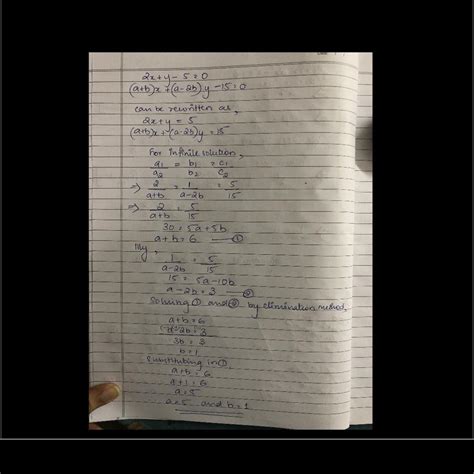 2x+y-5=0
(a+b)x+(a-2b)y-15=0
can be rewritten as,
2x+y=5
(a+b)x+(a-2b)y=15
For infinite solution,
a1/a2 = b1/b2 = c1/c2
⇒ 2/a+b = 1/a-2b = 5/15
⇒ 2/a+b = 5/15
30=5a+5b
a+b=6 —①
lly,
1/a-2b = 5/15
15=5a-10b
a-2b=3 —②
Solving ① and ② by elimination method,
a+b=6
a-2b=3
3b=3
b=1
Substituting in ①,
a+b=6
a+1=6
a=5
a=5 and b=1